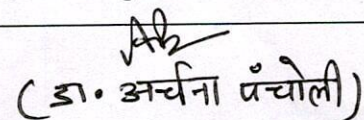 ( डा. अर्चना पंचोली )